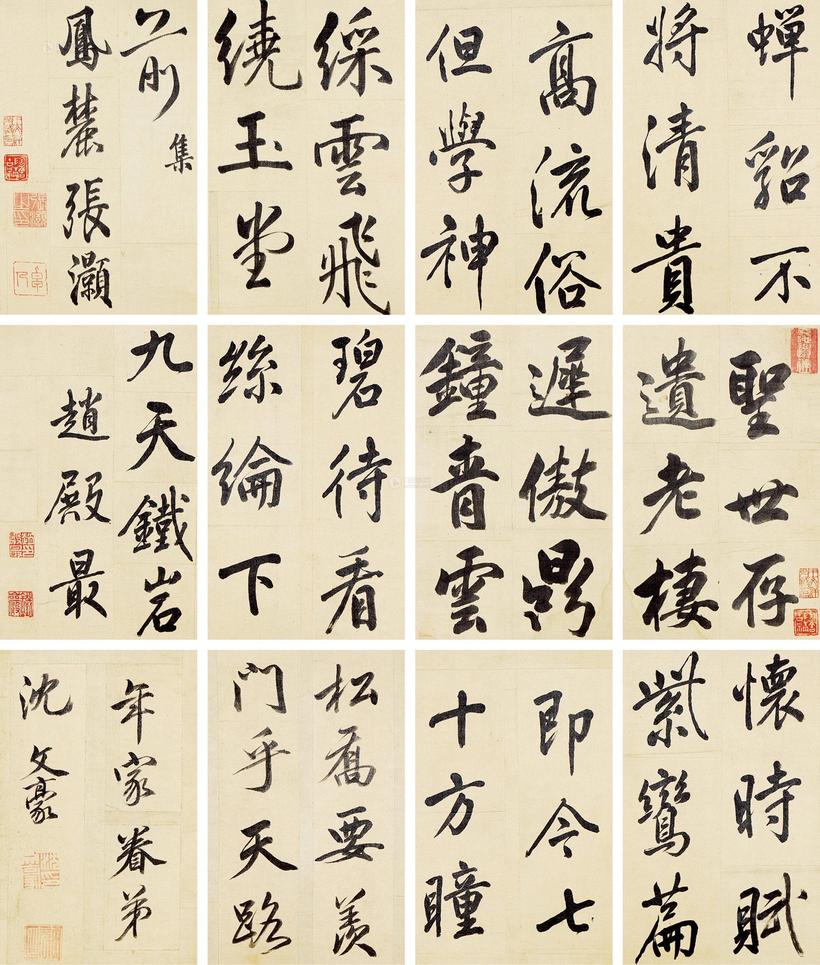 蟬貂不
將清貴
高流俗
但學神
綵雲飛
繞玉堂
前
集
鳳麓張灝
聖世存
遺老棲
遲傲鼎
鐘香雲
碧待看
絲綸下
九天鐵岩
趙殿最
懷時賦
紫鸞篇
即今七
十方瞳
松喬要羨
門乎天路
年家眷弟
沈文豪